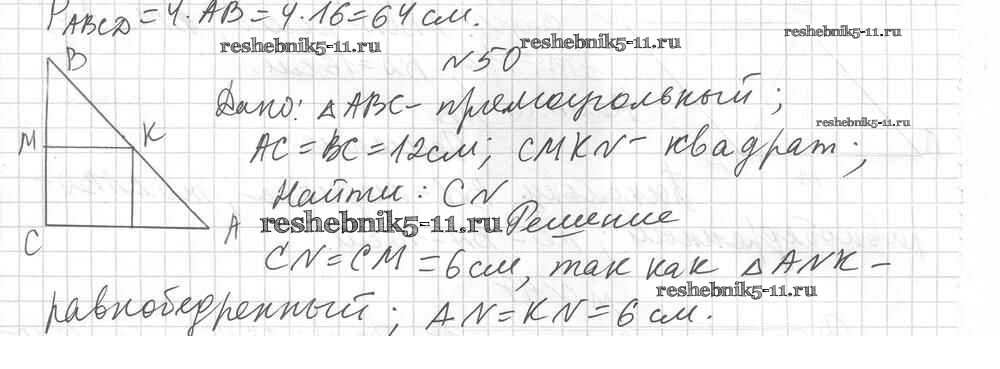 P ABCD = 4·AB = 4·16 = 64 см.
reshebnik5-11.ru reshebnik5-11.ru reshebnik5-11.ru
№50
B
Дано: △ABC - прямоугольный;
reshebnik5-11.ru
M K
AC = BC = 12см; CMKN - квадрат;
Найти: CN
reshebnik5-11.ru Решение
C A
CN = CM = 6 см, так как △ANK -
reshebnik5-11.ru
равнобедренный; AN = KN = 6 см.